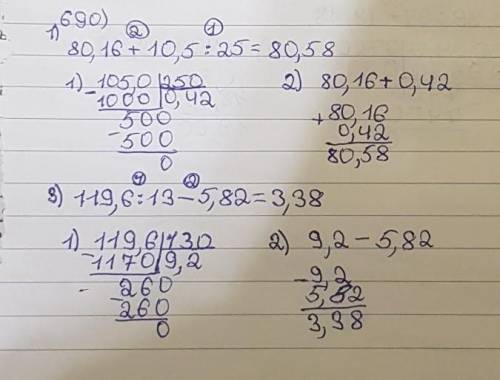 690)
② ①
1) 80,16 + 10,5 : 25 = 80,58
1) 105,0 | 250 2) 80,16 + 0,42
- 1000 | 0,42 + 80,16
500 0,42
- 500 80,58
0
① ②
3) 119,6 : 13 - 5,82 = 3,38
1) 119,6 | 130 2) 9,2 - 5,82
- 1170 | 9,2 - 9,2
- 260 5,82
- 260 3,38
0